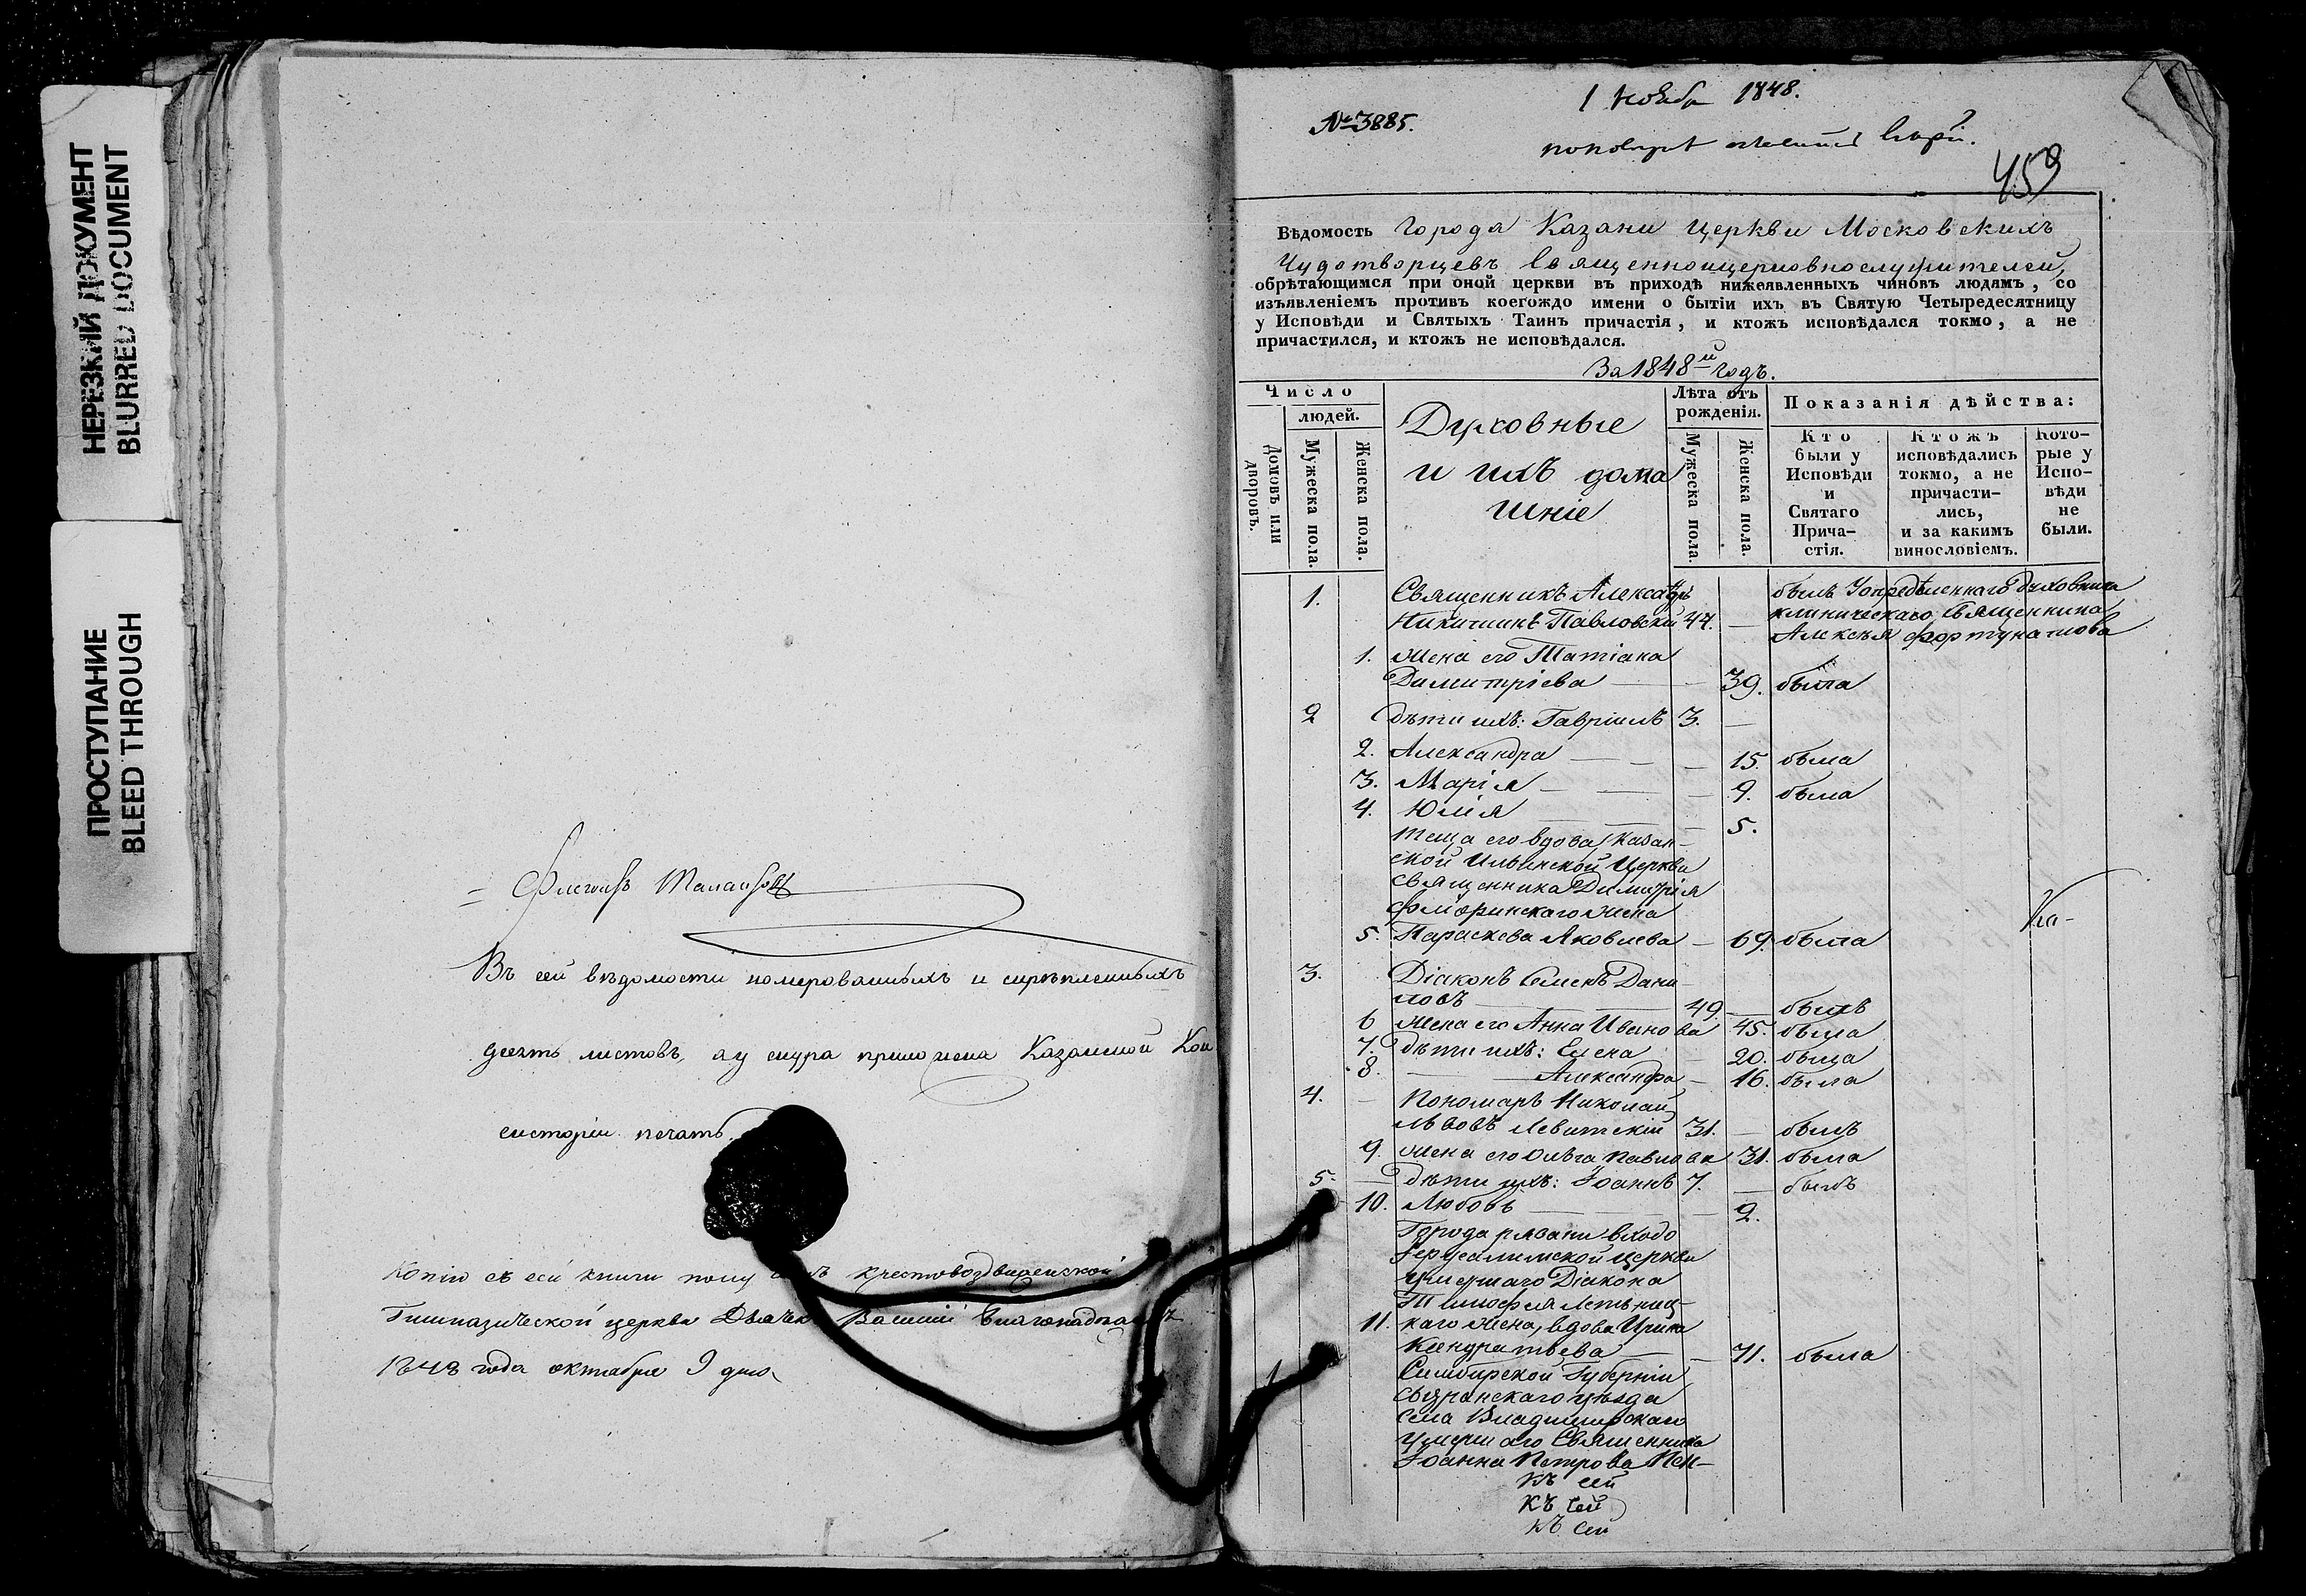 НЕРЕЗКИЙ ДОКУМЕНТ
BLURRED DOCUMENT
ПРОСТУПАНИЕ
BLEED THROUGH
Въ сей вѣдомости номерованныхъ и скрѣпленныхъ
десять листовъ, а у снура приложена Казанской Кон
систоріи печать.
Копію съ сей книги крестовоздвиженской
Гимназической церкви Дьячекъ Василій
1848 года октября 9 дня
1 Ноября 1848.
№ 3885.
459
Вѣдомость Города Казани Церкви Московскихъ
Чудотворцевъ Священноицерковнослужителей,
обрѣтающимся при оной церкви въ приходѣ нижеявленныхъ чиновъ людямъ, со
изъявленіемъ противъ коегождо имени о бытіи ихъ въ Святую Четыредесятницу
у Исповѣди и Святыхъ Таинъ причастія, и ктожъ исповѣдался токмо, а не
причастился, и ктожъ не исповѣдался.
За 1848й годъ.
Число
людей.
Домовъ или дворовъ.
Мужеска пола.
Женска пола.
Духовные
и ихъ дома
шніе
Лѣта отъ
рожденія.
Мужеска пола.
Женска пола.
Показанія дѣйства:
Кто
были у
Исповѣди
и
Святаго
Прича-
стія.
Ктожъ
исповѣдались
токмо, а не
причасти-
лись,
и за какимъ
винословіемъ.
Кото-
рые у
Испо-
вѣди
не
были.
1. Священникъ Александръ былъ Уопредѣленнаго Духовника
Никитинъ Павловскій 44. — клиническаго Священника
Алексѣя Фортунатова
1. Жена его Татіана
Димитріева — 39. была
2 Дѣти ихъ: Гавріилъ 3. —
2. Александра — 15. была
3. Марія — 9. была
4. Юлія — 5.
Теща его вдова, Казан-
ской Ильинской Церкви
священника Димитрія
Флоринскаго жена
5. Параскева Яковлева — 69. была
3. Діаконъ Семенъ Дани-
ловъ 49. — былъ
6 Жена его Анна Иванова 45. была
7. Дѣти ихъ: Елена 20. была
8. — Александра — 16. была
4. — Пономарь Николай
Львовъ Левитскій 31. — былъ
9. Жена его Ольга Павлова 31. была
5. — Дѣти ихъ: Іоаннъ 7. — былъ
10. Любовь — 2.
Города рязани входо
Іерусалимской церкви
умершаго Діакона
Тимофея Летниц-
11. каго жена, вдова Ирина
Кондратьева — 71. была
Симбирской Губерніи
Сызранскаго уѣзда
села Владимирскаго
умершаго Священника
Іоанна Петрова Пен-
къ сей
къ сей
къ сей
Ка-